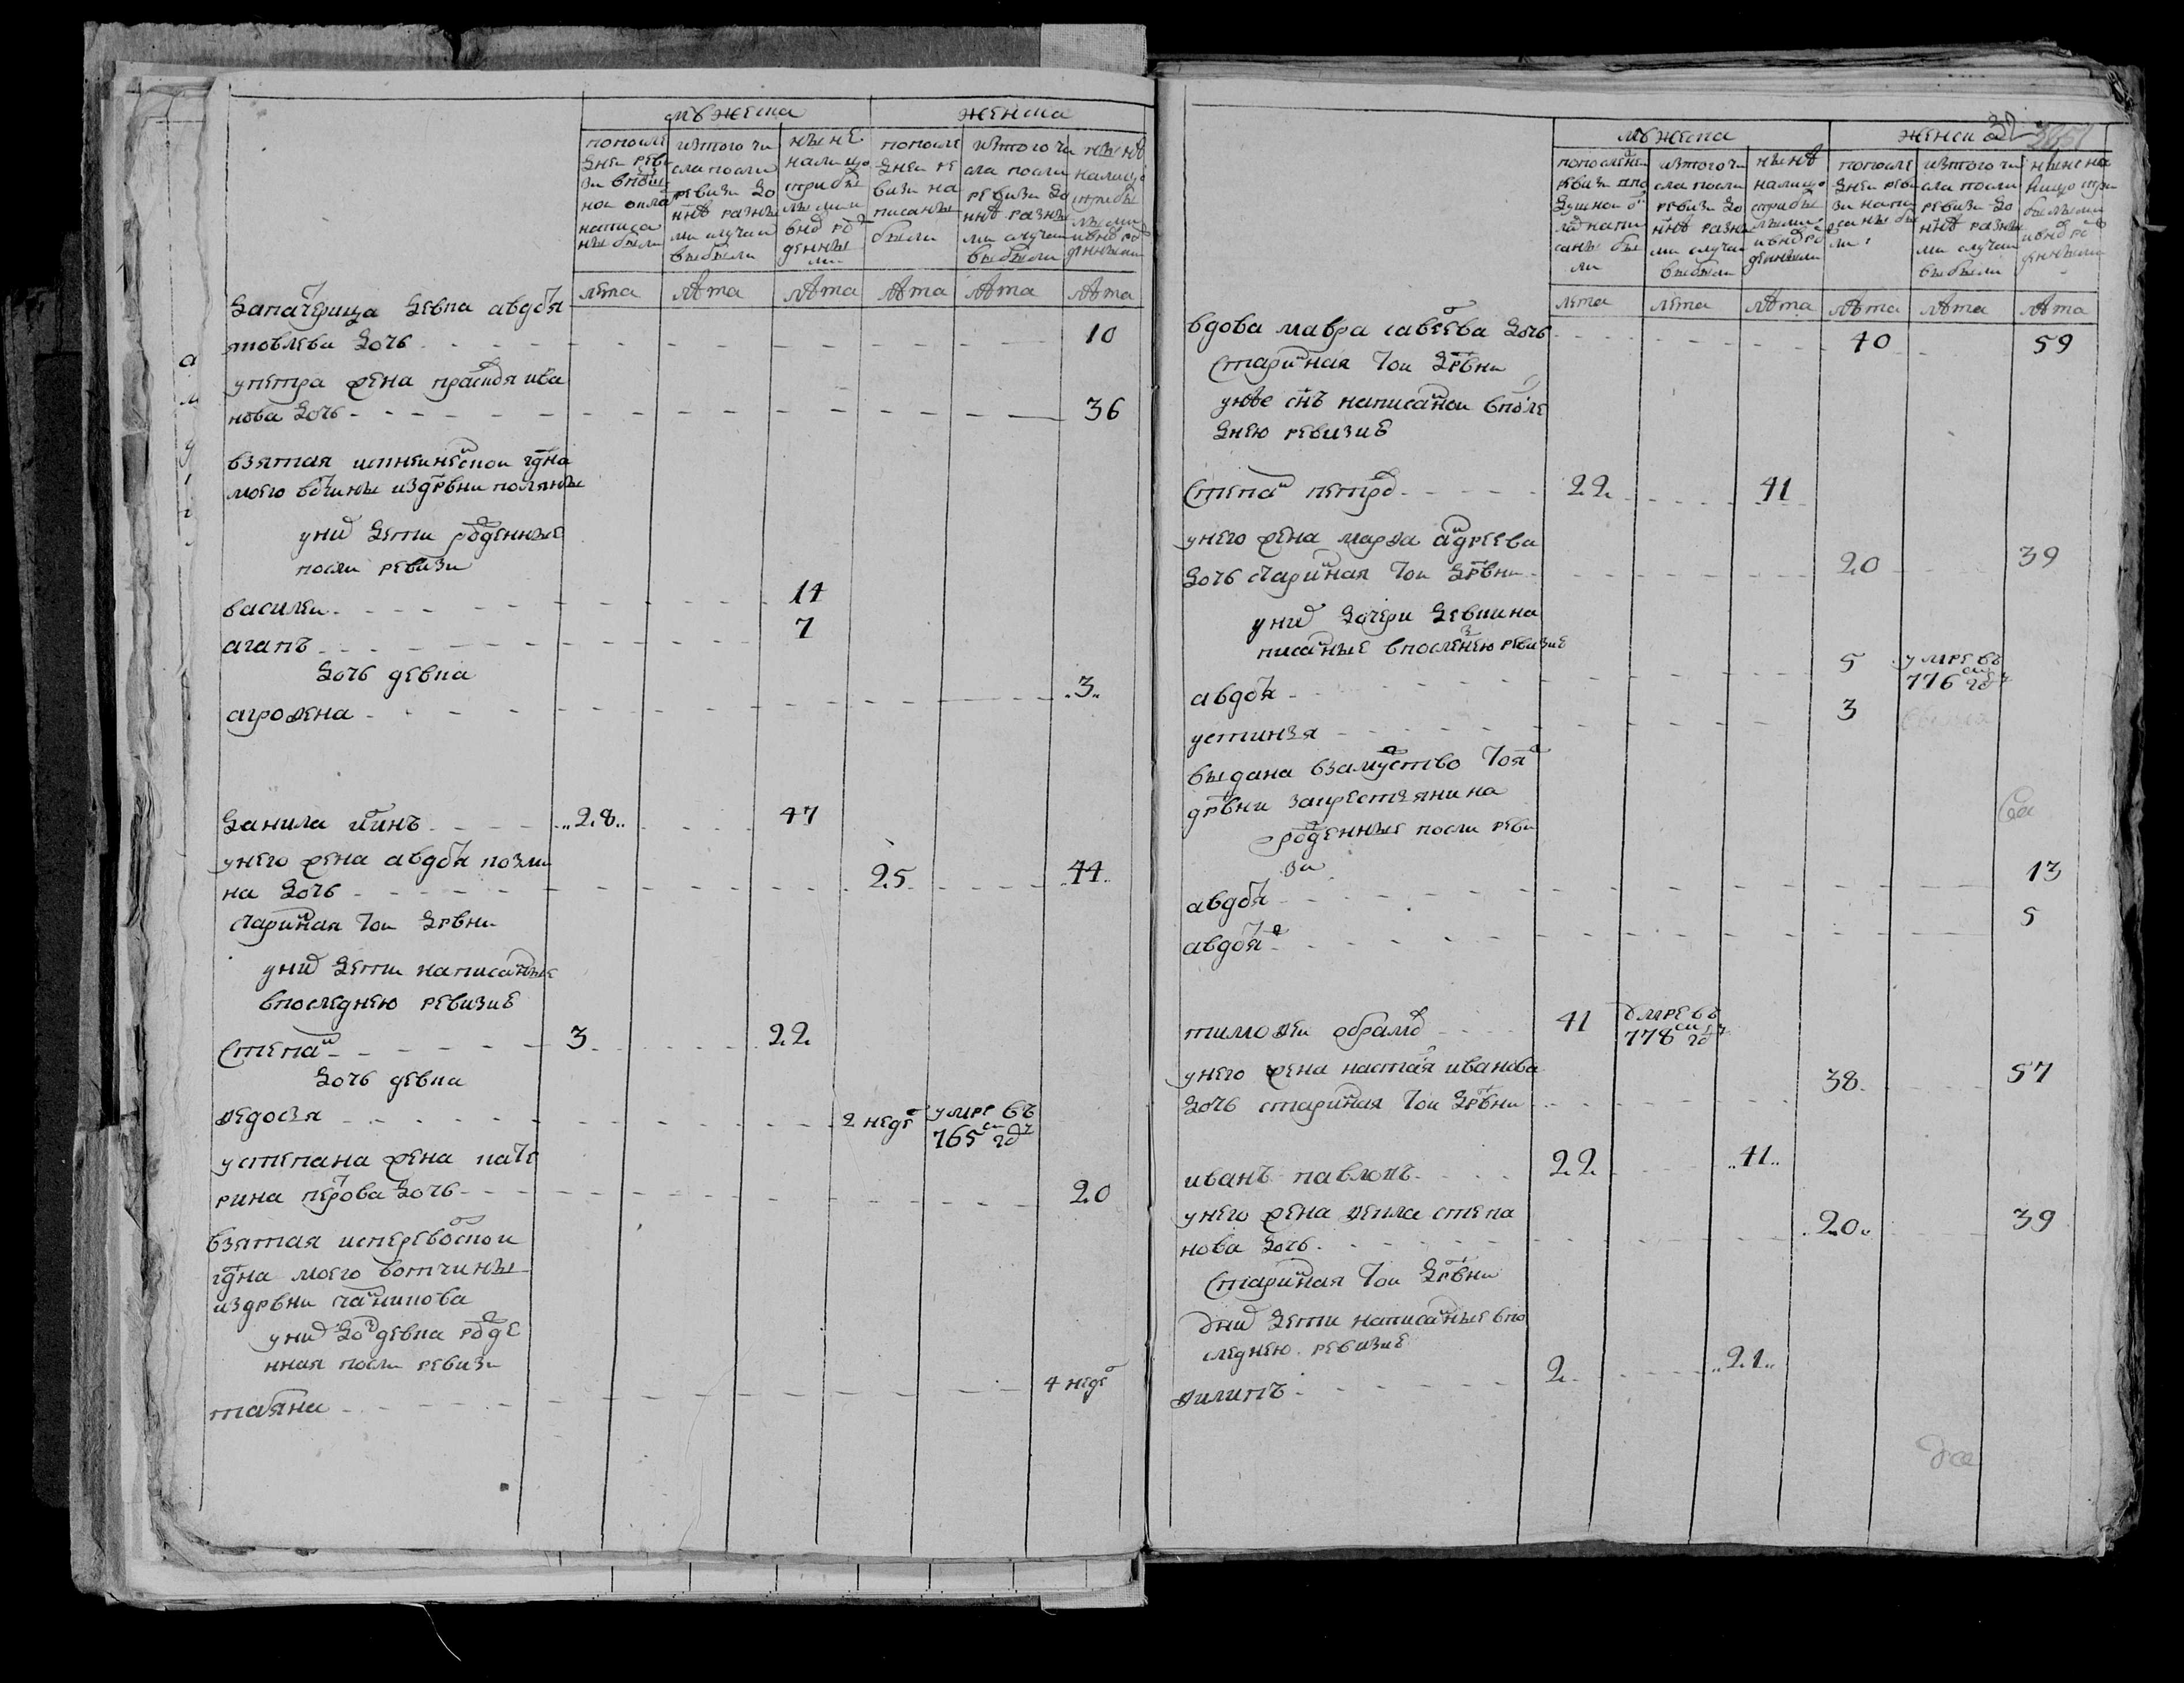 мужеска
женска
по после
дней реви
зи в поду
ной окла
написа
ны были
из того чи
сла после
ревизи до
ныне разны
ми случаи
выбыли
ныне
на лицо
с прибы
лыми и
внов ро
жденны
ми
по после
дней ре
визи на
писаны
были
из того чи
сла после
ревизи до
ныне разны
ми случаи
выбыли
ныне
на лицо
с прибы
лыми
и внов ро
жденными
лета
лѣта
лѣта
лѣта
лѣта
лѣта
падчерица девка авдотя
яковлева дочь 10
у петра жена прасковя ива
нова дочь 36
взятая
моего вотчины из дрвни поляны
у них дети рожденные
после ревизи
василей 14
агапъ 7
дочь девка
агрофена 3
данила 28 47
у него жена авдотя козми
на дочь 25 44
старинная той дрвни
у них дети написанные
в последнею ревизие
степан 3 22
дочь девка
федосья 2 недел умре въ
765м году
у степана жена кате
рина петрова дочь 20
взятая
гдна моего вотчины
из дрвни
у них дочь девка рожде
нная после ревизи
татяна 4 недел
32
мужеска
женска
по последней
ревизи в по
душной о
клад напи
саны бы
ли
из того чи
сла после
ревизи до
ныне разны
ми случаи
выбыли
ныне
на лицо
с прибы
лыми
и внов ро
жденными
по после
дней реви
зи напи
саны бы
ли
из того чи
сла после
ревизи до
ныне разны
ми случаи
выбыли
ныне на
лицо с при
былыми
и внов ро
жденными
лета
лета
лѣта
лѣта
лѣта
лѣта
вдова мавра савелева дочь 40 59
старинная той дрвни
у нее снъ написанной в после
днею ревизие
степан петров 22 41
у него жена марфа андреева
дочь старинная той дрвни 20 39
у них дочери девки на
писанные в последнею ревизие
авдотя 5 умре въ
776м году
устинья 3
выдана в замужство тоя ж
дрвни за крестьянина
рожденные после реви
зи
авдотя 13
авдотя ж 5
тимофей абрамов 41 умре въ
778м году
у него жена настася иванова
дочь старинная той дрвни 38 57
иванъ павловъ 22 41
у него жена фекла степа
нова дочь 20 39
старинная той дрвни
у них дети написанные в по
следнею ревизие
филипъ 2 21